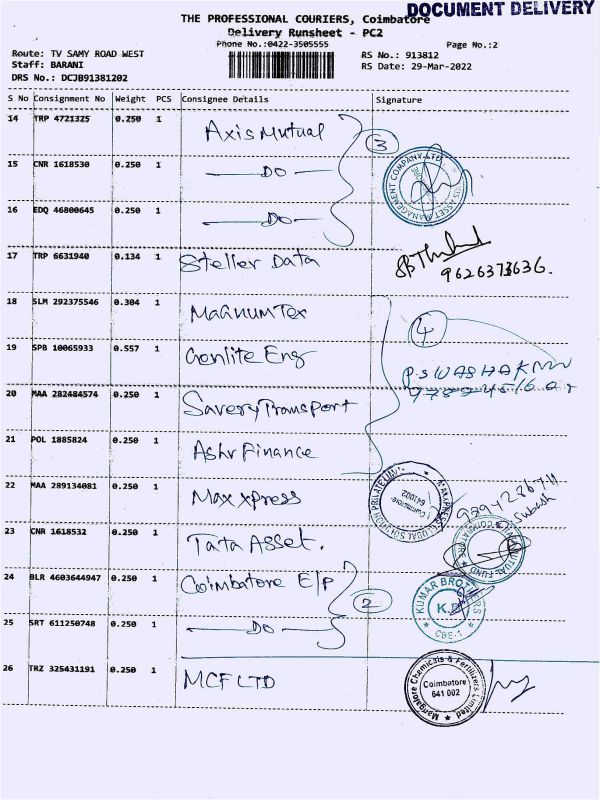 DOCUMENT DELIVERY
THE PROFESSIONAL COURIERS, Coimbatore
Delivery Runsheet - PC2
Phone No.:0422-3505555
Page No.:2
Route: TV SAMY ROAD WEST
RS No.: 913812
Staff: BARANI
RS Date: 29-Mar-2022
DRS No.: DCJB91381202
S No Consignment No Weight PCS Consignee Details Signature
14 TRP 4721325 0.250 1 Axis Mutual
3
15 CNR 1618530 0.250 1 DO
16 EDQ 46800645 0.250 1 DO
17 TRP 6631940 0.134 1 Steller Data
9626373636.
18 SLM 292375546 0.304 1 MaGnumTex
4
19 SPB 10065933 0.557 1 Genlite Eng
20 MAA 282484574 0.250 1 SaveryTransport
21 POL 1885824 0.250 1 Ashv Finance
22 MAA 289134081 0.250 1 Maxxpress
Coimbatore 641002
Subash
23 CNR 1618532 0.250 1 Tata Asset.
24 BLR 4603644947 0.250 1 Coimbatore E/P
2
KUMAR BROTHERS
K.B
CBE-1
25 SRT 611250748 0.250 1 DO
26 TRZ 325431191 0.250 1 MCF LTD
Mangalore Chemicals & Fertilizers Limited
Coimbatore
641 002